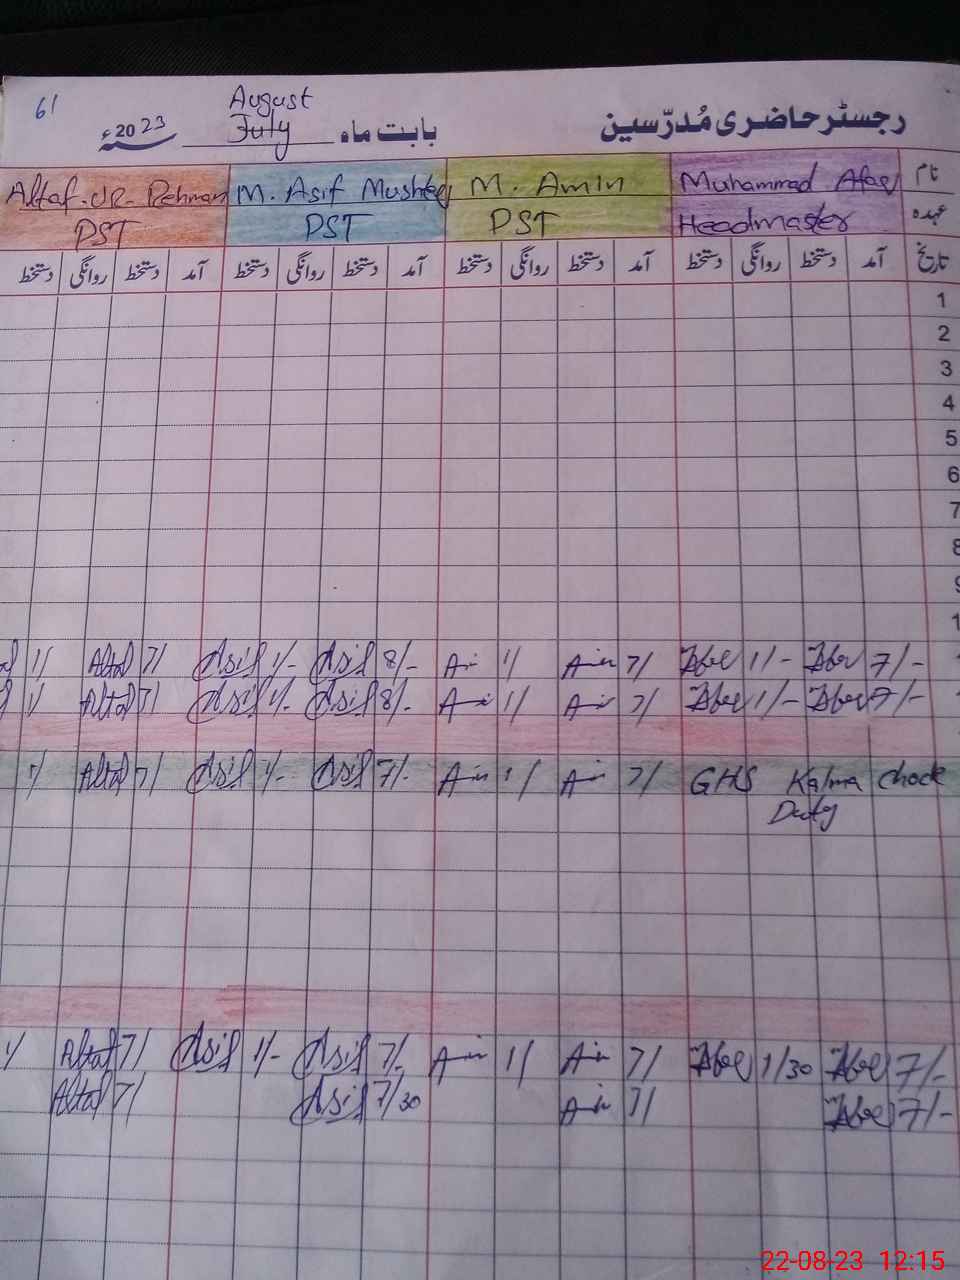 61
August
رجسٹر حاضری مُدرّسین بابت ماہ July سنہ 2023ء
نام Muhammad Afaq M. Amin M. Asif Mushtaq Altaf-ur-Rehman
عہدہ Headmaster PST PST PST
تاریخ آمد دستخط روانگی دستخط آمد دستخط روانگی دستخط آمد دستخط روانگی دستخط آمد دستخط روانگی دستخط
1
2
3
4
5
6
7
8
9
1
7/- 1/- 7/ Amin 1/ 8/- Asif 1/- Asif 7/ Altaf 1/
7/- 1/- 7/ 1/ 8/- Asif 1/- Asif 7/ Altaf 1/
GHS Kalma Chock 7/ 1/ 7/- Asif 1/- Asif 7/ Altaf 1/
Duty
7/- 1/30 7/ 1/ 7/- Asif 1/- Asif 7/ Altaf 1/
7/- 7/ 7/30 Asif 7/ Altaf
22-08-23 12:15